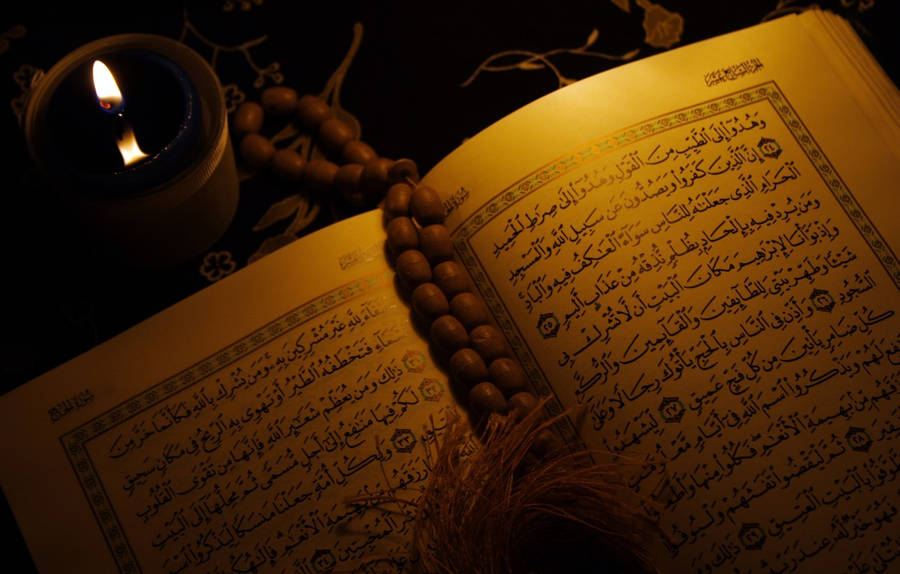 الجزء السابع عشر
وَهُدُوٓا۟ إِلَى ٱلطَّيِّبِ مِنَ ٱلْقَوْلِ وَهُدُوٓا۟ إِلَىٰ صِرَٰطِ ٱلْحَمِيدِ
٢٤ إِنَّ ٱلَّذِينَ كَفَرُوا۟ وَيَصُدُّونَ عَن سَبِيلِ ٱللَّهِ وَٱلْمَسْجِدِ
ٱلْحَرَامِ ٱلَّذِى جَعَلْنَٰهُ لِلنَّاسِ سَوَآءً ٱلْعَٰكِفُ فِيهِ وَٱلْبَادِ
وَمَن يُرِدْ فِيهِ بِإِلْحَادٍۭ بِظُلْمٍ نُّذِقْهُ مِنْ عَذَابٍ أَلِيمٍ ٢٥
وَإِذْ بَوَّأْنَا لِإِبْرَٰهِيمَ مَكَانَ ٱلْبَيْتِ أَن لَّا تُشْرِكْ بِى
شَيْـًٔا وَطَهِّرْ بَيْتِىَ لِلطَّآئِفِينَ وَٱلْقَآئِمِينَ وَٱلرُّكَّعِ
ٱلسُّجُودِ ٢٦ وَأَذِّن فِى ٱلنَّاسِ بِٱلْحَجِّ يَأْتُوكَ رِجَالًا وَعَلَىٰ
كُلِّ ضَامِرٍ يَأْتِينَ مِن كُلِّ فَجٍّ عَمِيقٍ ٢٧ لِّيَشْهَدُوا۟
لَهُمْ وَيَذْكُرُوا۟ ٱسْمَ ٱللَّهِ فِىٓ أَيَّامٍ
مِّنۢ بَهِيمَةِ ٱلْأَنْعَٰمِ فَكُلُوا۟ مِنْهَا
٢٨ ثُمَّ لْيَقْضُوا۟ تَفَثَهُمْ وَلْيُوفُوا۟
بِٱلْبَيْتِ ٱلْعَتِيقِ ٢٩ ذَٰلِكَ
فَهُوَ خَيْرٌ لَّهُۥ عِندَ رَبِّهِۦ
سورة الحج
لِلَّهِ غَيْرَ مُشْرِكِينَ بِهِۦ وَمَن يُشْرِكْ بِٱللَّهِ فَكَأَنَّمَا خَرَّ مِنَ
فَتَخْطَفُهُ ٱلطَّيْرُ أَوْ تَهْوِى بِهِ ٱلرِّيحُ فِى مَكَانٍ سَحِيقٍ
ذَٰلِكَ وَمَن يُعَظِّمْ شَعَٰٓئِرَ ٱللَّهِ فَإِنَّهَا مِن تَقْوَى ٱلْقُلُوبِ
لَكُمْ فِيهَا مَنَٰفِعُ إِلَىٰٓ أَجَلٍ مُّسَمًّى ثُمَّ مَحِلُّهَآ إِلَى ٱلْبَيْتِ
٣٣ وَلِكُلِّ أُمَّةٍ جَعَلْنَا مَنسَكًا لِّيَذْكُرُوا۟ ٱسْمَ
ٱلْأَنْعَٰمِ فَإِلَٰهُكُمْ
٣٤